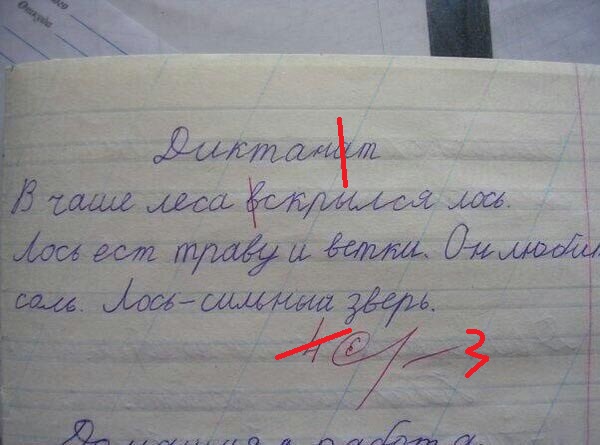 Откуда
Диктанат
В чаше леса вскрылся лось.
Лось ест траву и ветки. Он любит
соль. Лось-сильный зверь.
4 3
Домашняя работа